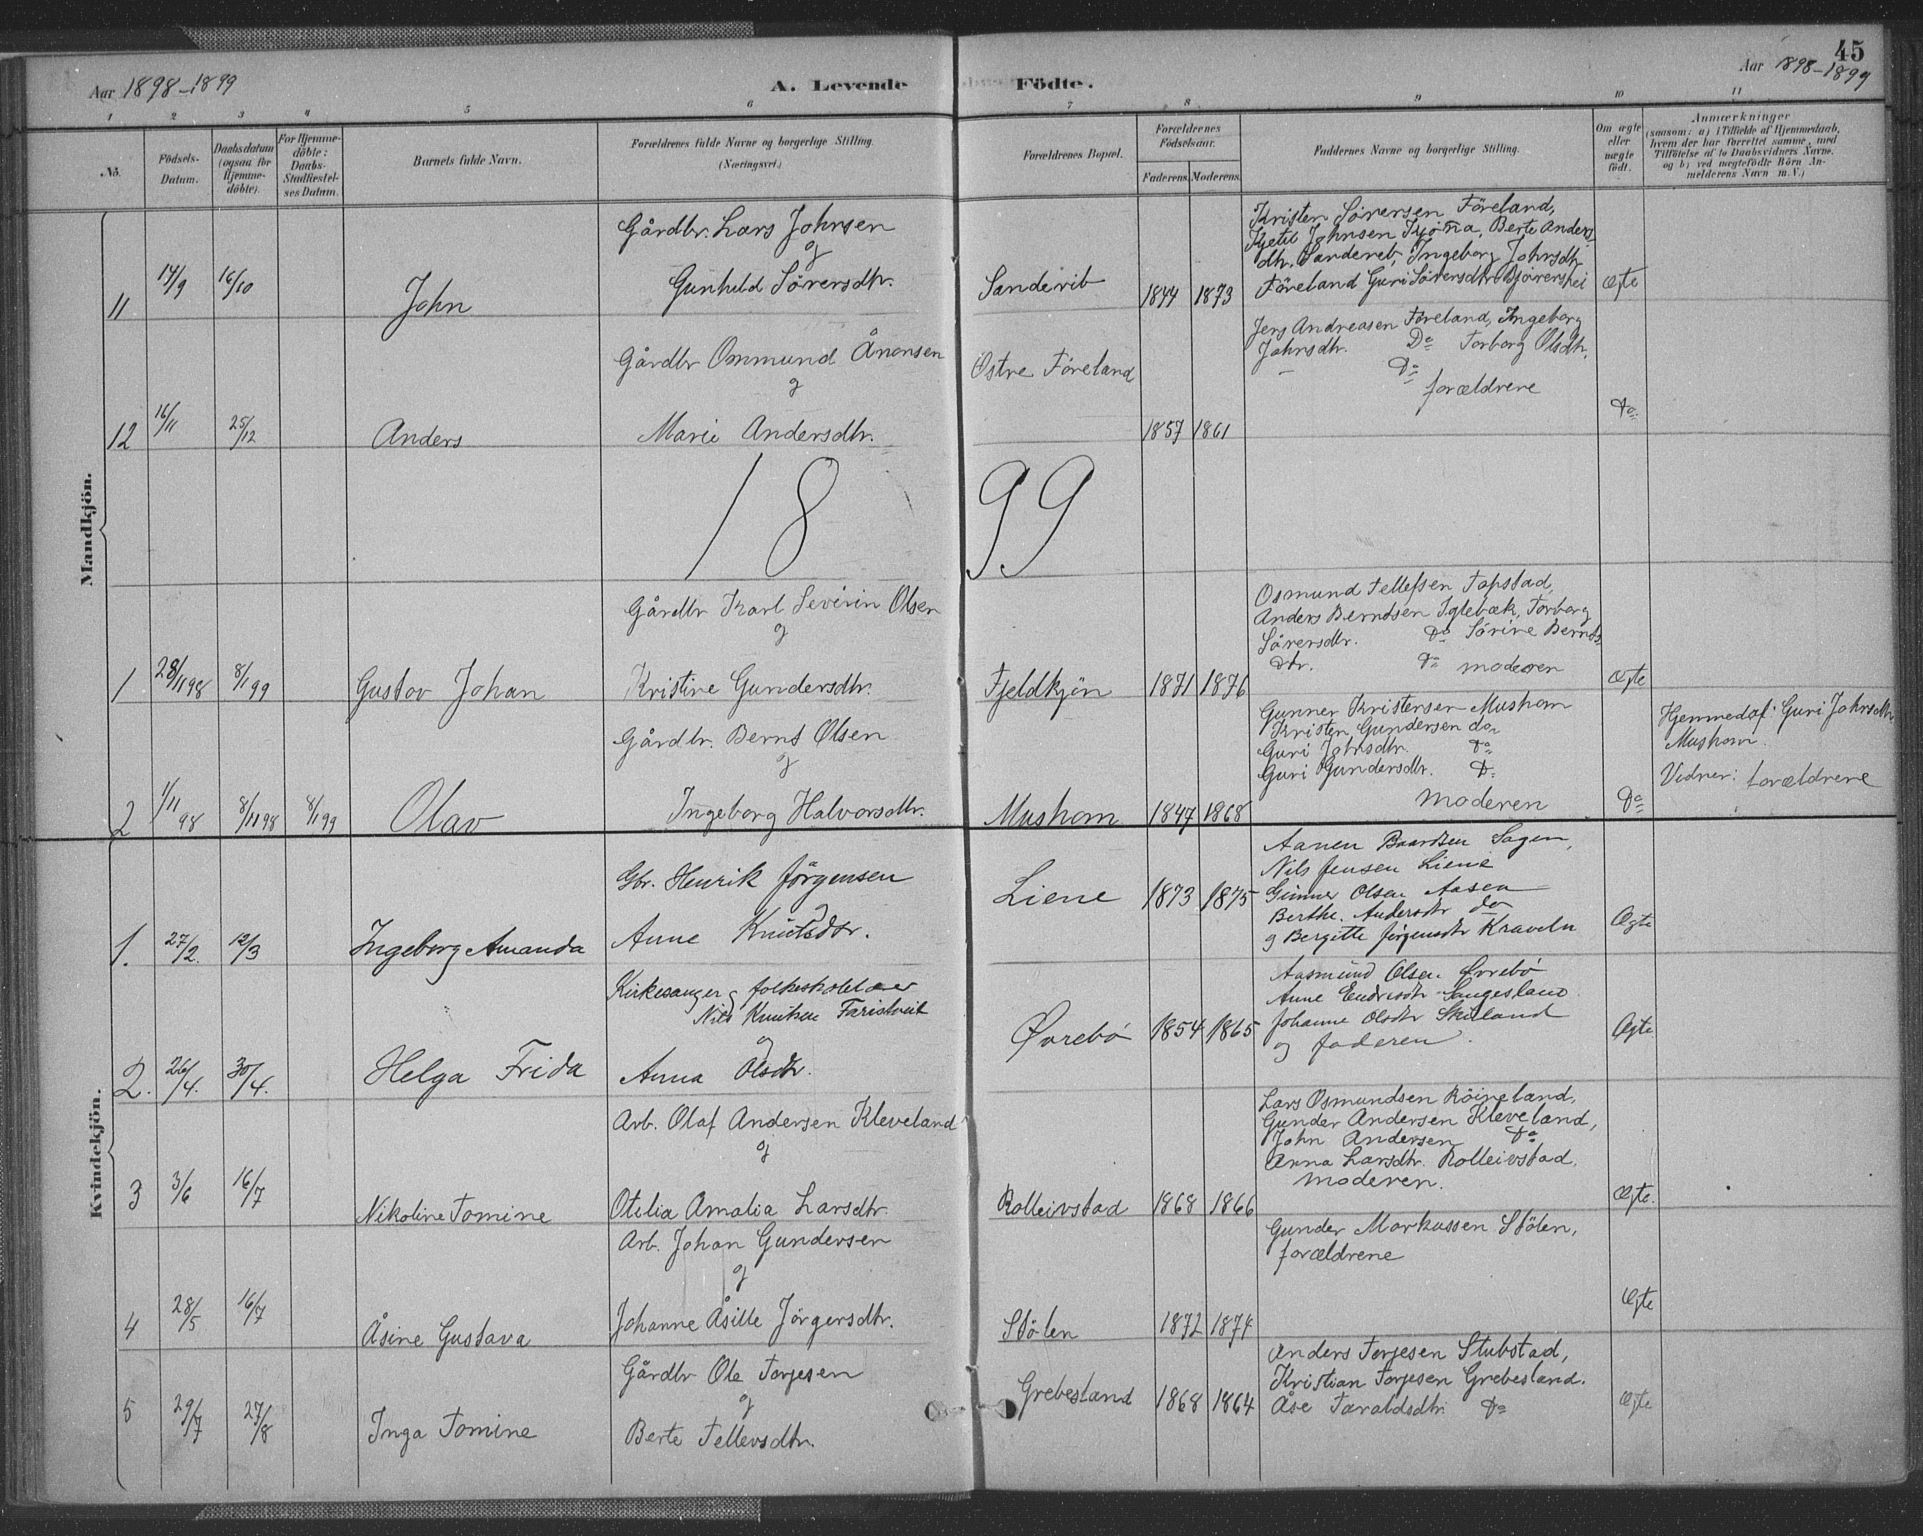 45
Aar 1898-1899
A. Levende Födte.
Aar 1898-1899
1 2 3 4 5 6 7 8 9 10 11
No.
Födsels-
Datum.
Daabsdatum
(ogsaa for
Hjemme-
döbte).
For Hjemme-
döbte:
Daabs-
Stadfæstel-
ses Datum.
Barnets fulde Navn.
Forældrenes fulde Navne og borgerlige Stilling.
(Næringsvei.)
Forældrenes Bopæl.
Forældrenes
Födselsaar.
Faderens. Moderens.
Faddernes Navne og borgerlige Stilling.
Om ægte
eller
uægte
født.
Anmærkninger
(saasom: a) i Tilfælde af Hjemmedaab,
hvem der har forrettet samme, med
Tilföielse af to Daabsvidners Navne.
og b) ved uægtefödte Börn An-
melderens Navn m. V.)
Mandkjön.
11 14/9 16/10 John
Gårdbr. Lars Johnsen
og
Gunhild Sörensdtr.
Sandevib 1844 1873
Kristen Sörensen Föreland,
Kjetil Johnsen Anders
dtr. Ingeborg Johnsdtr
Föreland Guri Sörensdtr
Ægte
12 16/11 25/12 Anders
Gårdbr Ommund Ånensen
og
Marie Andersdtr.
Östre Föreland 1857 1861
Jens Andreasen Föreland, Ingeborg
Johnsdtr. Do Torborg Olsdtr,
Do
forældrene
Do
1899
1 28/11 98 8/1 99 Gustav Johan
Gårdbr Karl Severin Olsen
og
Kristine Gundersdtr.
Fjeldkjön 1871 1876
Osmund Tellefsen Topstad,
Anders Berndsen Iglebæk, Torborg
Sörensdtr. Do Sörine Bernds
dtr. Do moderen
Ægte
2 1/11 98 8/11 98 8/1 99 Olav
Gårdbr. Bernt Olsen
og
Ingeborg Halvorsdtr.
Mushom 1847 1868
Gunner Kristensen Mushom
Kristen Gundersen do
Guri Johnsdtr. Do
Guri Gundersdtr. Do
Moderen
Do
Hjemmedøf: Guri Johnsdtr,
Mushom.
Vidner: forældrene
Kvindekjön.
1. 27/2. 12/3 Ingeborg Amanda
Gbr. Henrik Jörgensen
og
Anne Knutsdtr.
Liene 1873 1875
Aanen Baardsen Sagen,
Nils Jensen Liene
Gunner Olsen Aasen
Berthe Andersdtr do
og Bergitte Jörgensdtr Kraveln
Ægte
2. 26/4. 30/4. Helga Frida
Kirkesanger og folkeskolelærer
Nils Knutsen Faristveit
og
Anna Olsdtr.
Øvrebø 1854 1865
Aasmund Olsen Øvrebö
Anne Endresdtr Sangesland
Johanne Olsdtr Skuland
og faderen.
Ægte
3 3/6 16/7 Nikoline Tomine
Arb. Olaf Andersen Kleveland
og
Otilia Amalia Larsdtr.
Rolleivstad 1868 1866
Lars Osmundsen Röineland,
Gunder Andersen Kleveland,
John Andersen Do
Anna Larsdtr. Rolleivstad,
moderen.
Ægte.
4 28/5 16/7 Åsine Gustava
Arb. Johan Gundersen
og
Johanne Åsille Jörgensdtr.
Stölen 1872 1874
Gunder Markussen Stölen,
forældrene
Ægte
5 29/7 27/8 Inga Tomine
Gårdbr Ole Torjesen
og
Berte Tellevsdtr.
Grebesland 1868 1864
Anders Torjesen Stubstad,
Kristian Torjesen Grebesland.
Åse Taraldsdtr Do
Ægte